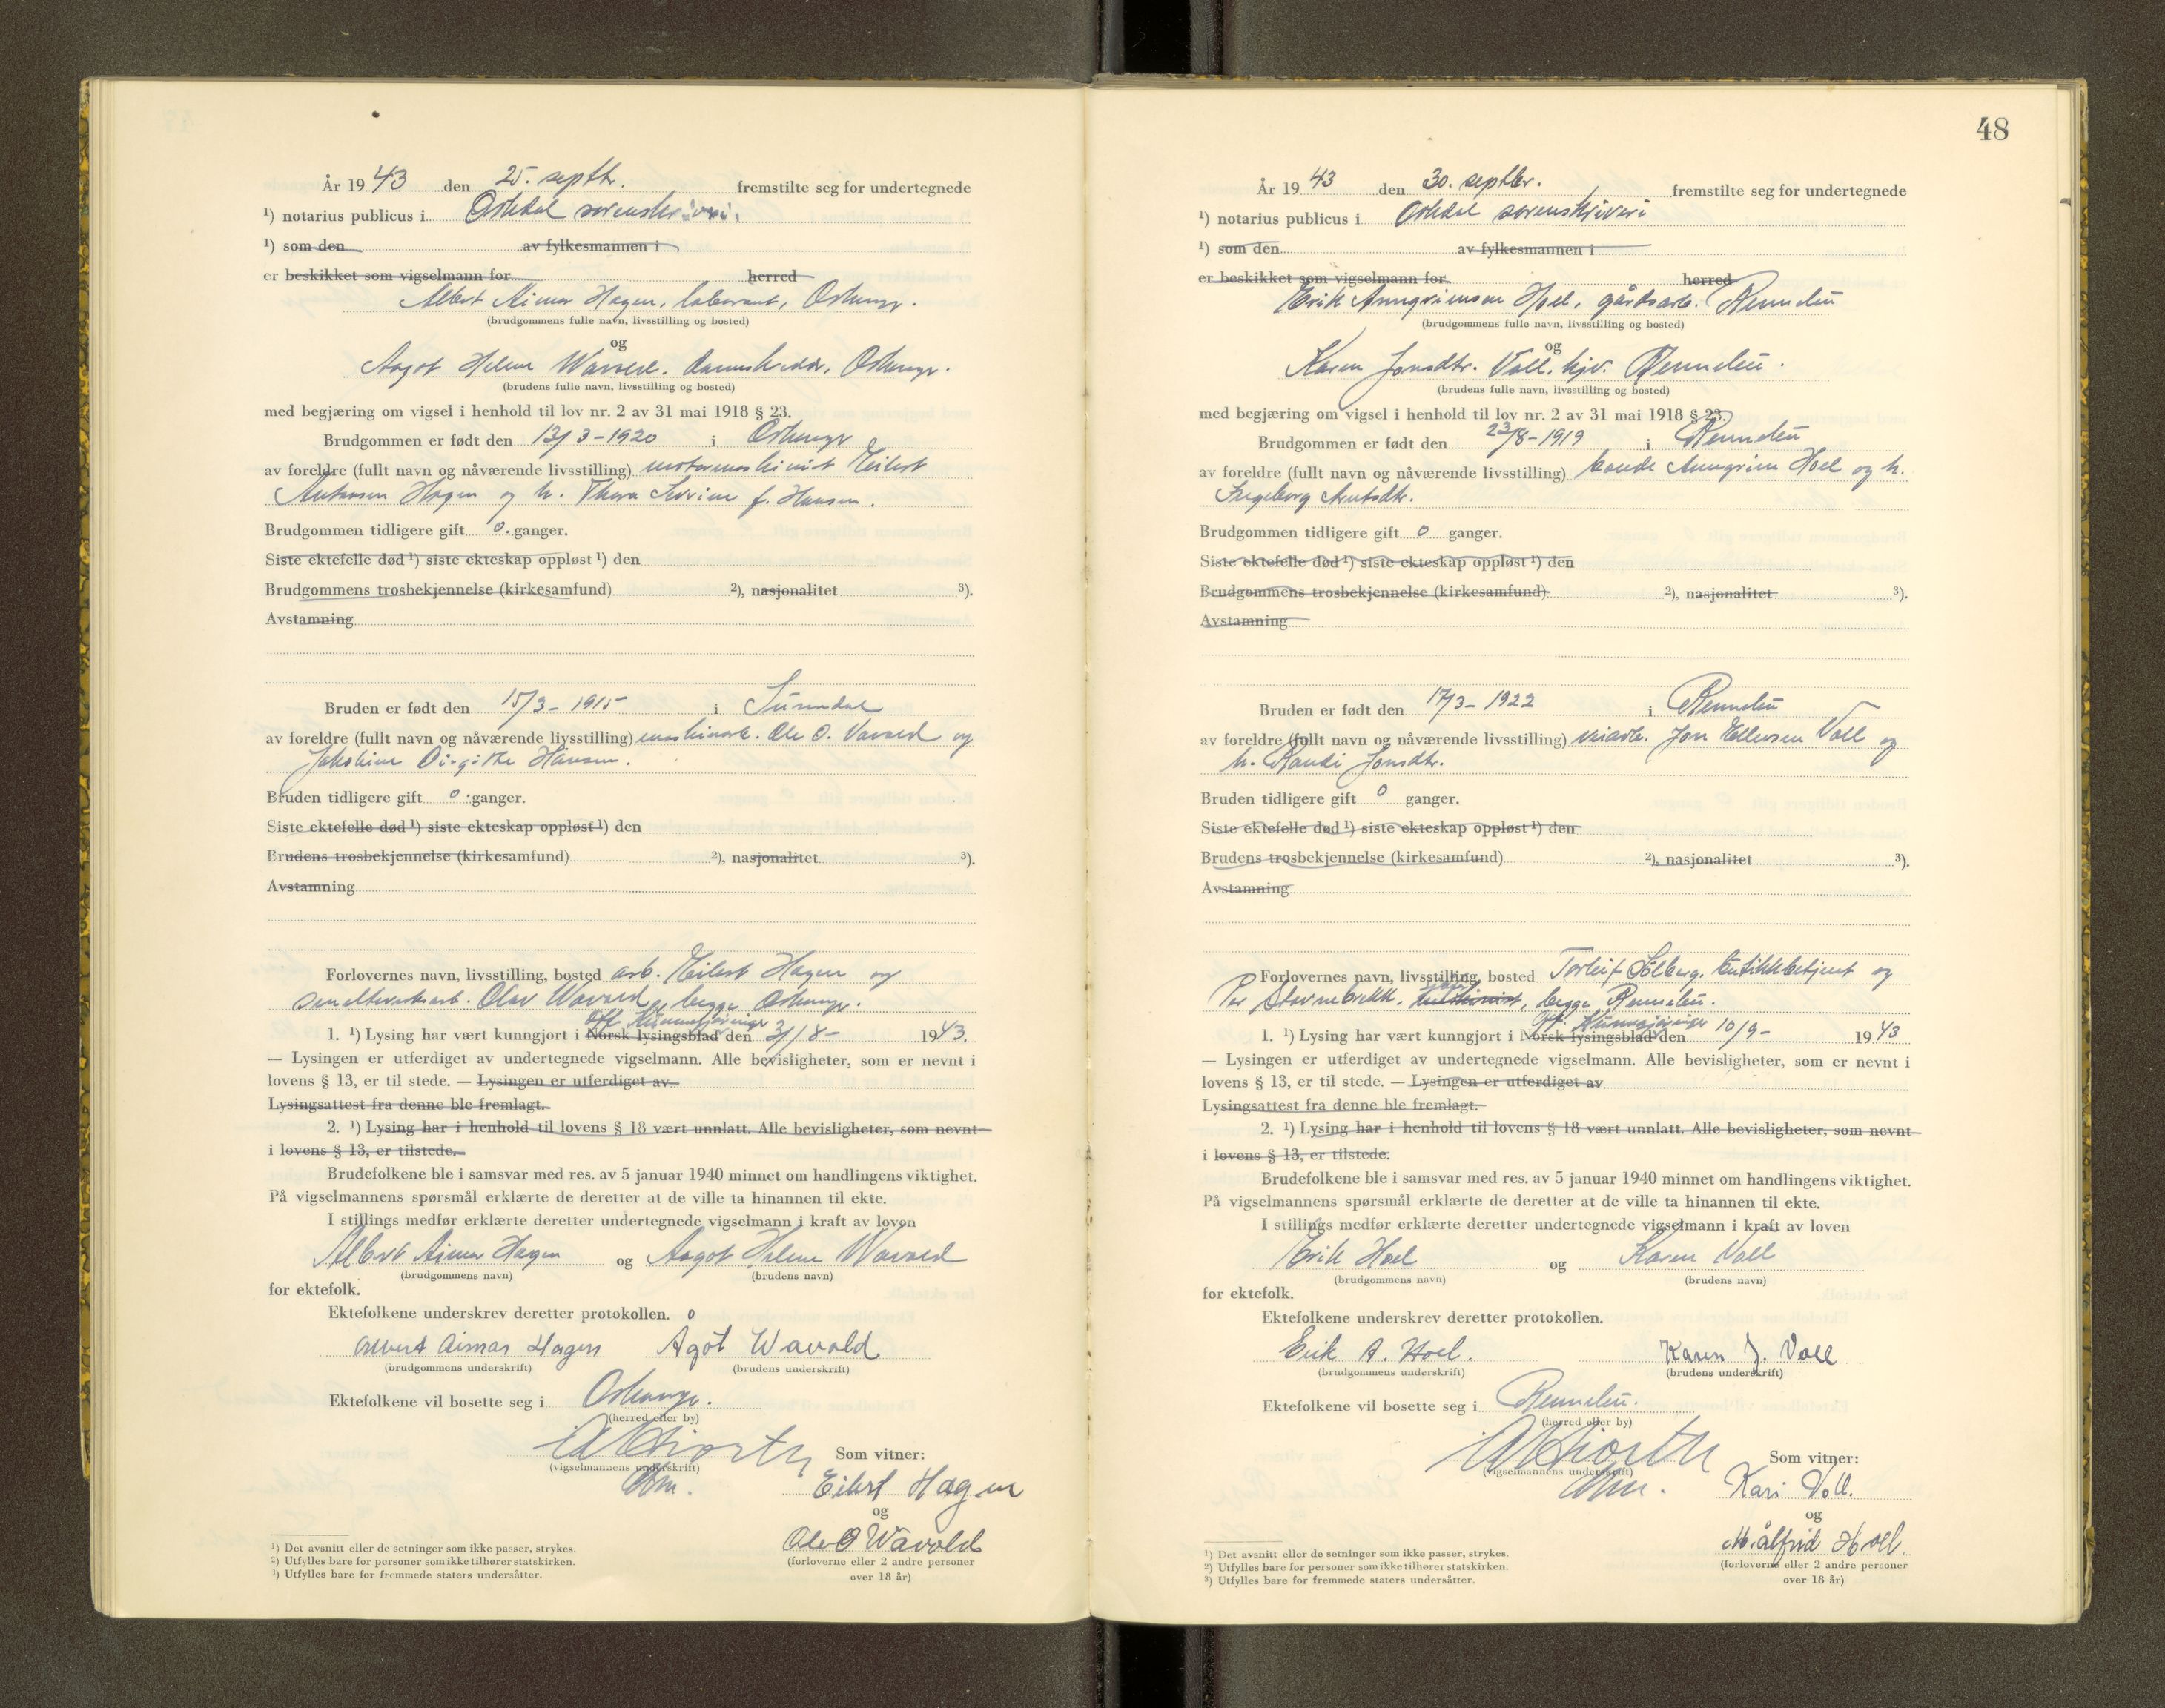 År 1943 den 25. septbr. fremstilte seg for undertegnede
¹) notarius publicus i Orkdal sorenskriveri.
¹) som den av fylkesmannen i
er beskikket som vigselmann for herred
Albert Aimar Hagen, laborant, Orkanger.
(brudgommens fulle navn, livsstilling og bosted)
og
Aagot Helene Wavold, Orkanger.
(brudens fulle navn, livsstilling og bosted)
med begjæring om vigsel i henhold til lov nr. 2 av 31 mai 1918 § 23.
Brudgommen er født den 13/3-1920 i Orkanger
av foreldre (fullt navn og nåværende livsstilling) motormaskinist Eilert
Antonsen Hagen og h. Thora f. Hansen.
Brudgommen tidligere gift 0. ganger.
Siste ektefelle død ¹) siste ekteskap oppløst ¹) den
Brudgommens trosbekjennelse (kirkesamfund) ²), nasjonalitet ³).
Avstamning
Bruden er født den 15/3-1915 i Surndal
av foreldre (fullt navn og nåværende livsstilling) maskinarb. Ole O. Vavold og
Jakobine Birgitte Hansen.
Bruden tidligere gift 0. ganger.
Siste ektefelle død ¹) siste ekteskap oppløst ¹) den
Brudens trosbekjennelse (kirkesamfund) ²), nasjonalitet ³).
Avstamning
Forlovernes navn, livsstilling, bosted arb. Eilert Hagen og
smelteverksarb. Olav Wavold, begge Orkanger.
Off. Kunngjøringer
1. ¹) Lysing har vært kunngjort i Norsk lysingsblad den 3/8- 1943.
— Lysingen er utferdiget av undertegnede vigselmann. Alle bevisligheter, som er nevnt i
lovens § 13, er til stede. — Lysingen er utferdiget av
Lysingsattest fra denne ble fremlagt.
2. ¹) Lysing har i henhold til lovens § 18 vært unnlatt. Alle bevisligheter, som nevnt
i lovens § 13, er tilstede.
Brudefolkene ble i samsvar med res. av 5 januar 1940 minnet om handlingens viktighet.
På vigselmannens spørsmål erklærte de deretter at de ville ta hinannen til ekte.
I stillings medfør erklærte deretter undertegnede vigselmann i kraft av loven
Albert Aimar Hagen og Aagot Helene Wavold
(brudgommens navn) (brudens navn)
for ektefolk.
Ektefolkene underskrev deretter protokollen.
Albert Aimar Hagen Agot Wavold
(brudgommens underskrift) (brudens underskrift)
Ektefolkene vil bosette seg i Orkanger.
(herred eller by)
Som vitner:
(vigselmannens underskrift)
Eilert Hagen
og
Ole O Wavold
(forloverne eller 2 andre personer
over 18 år)
¹) Det avsnitt eller de setninger som ikke passer, strykes.
²) Utfylles bare for personer som ikke tilhører statskirken.
³) Utfylles bare for fremmede staters undersåtter.
48
År 1943 den 30. septbr. fremstilte seg for undertegnede
¹) notarius publicus i Orkdal sorenskriveri
¹) som den av fylkesmannen i
er beskikket som vigselmann for herred
Erik Arngrimsen Hoel, gårdsarb. Rennebu
(brudgommens fulle navn, livsstilling og bosted)
og
Karen Jonsdtr. Voll, hjv. Rennebu.
(brudens fulle navn, livsstilling og bosted)
med begjæring om vigsel i henhold til lov nr. 2 av 31 mai 1918 § 23.
Brudgommen er født den 23/8-1919 i Rennebu
av foreldre (fullt navn og nåværende livsstilling) bonde Arngrim Hoel og h.
Ingeborg Arntsdtr.
Brudgommen tidligere gift 0 ganger.
Siste ektefelle død ¹) siste ekteskap oppløst ¹) den
Brudgommens trosbekjennelse (kirkesamfund) ²), nasjonalitet ³).
Avstamning
Bruden er født den 17/3-1922 i Rennebu
av foreldre (fullt navn og nåværende livsstilling) veiarb. Jon Ellevsen Voll og
h. Randi Jonsdtr.
Bruden tidligere gift 0 ganger.
Siste ektefelle død ¹) siste ekteskap oppløst ¹) den
Brudens trosbekjennelse (kirkesamfund) ²), nasjonalitet ³).
Avstamning
Forlovernes navn, livsstilling, bosted Torleif Solberg, butikkbetjent og
Per Stavnebrekk, begge Rennebu.
Off. Kunngjøringer
1. ¹) Lysing har vært kunngjort i Norsk lysingsblad den 10/9- 1943
— Lysingen er utferdiget av undertegnede vigselmann. Alle bevisligheter, som er nevnt i
lovens § 13, er til stede. — Lysingen er utferdiget av
Lysingsattest fra denne ble fremlagt.
2. ¹) Lysing har i henhold til lovens § 18 vært unnlatt. Alle bevisligheter, som nevnt
i lovens § 13, er tilstede.
Brudefolkene ble i samsvar med res. av 5 januar 1940 minnet om handlingens viktighet.
På vigselmannens spørsmål erklærte de deretter at de ville ta hinannen til ekte.
I stillings medfør erklærte deretter undertegnede vigselmann i kraft av loven
Erik Hoel og Karen Voll
(brudgommens navn) (brudens navn)
for ektefolk.
Ektefolkene underskrev deretter protokollen.
Erik A. Hoel. Karen J. Voll
(brudgommens underskrift) (brudens underskrift)
Ektefolkene vil bosette seg i Rennebu.
(herred eller by)
Som vitner:
(vigselmannens underskrift)
Kari Voll.
og
Målfrid Hoel.
(forloverne eller 2 andre personer
over 18 år)
¹) Det avsnitt eller de setninger som ikke passer, strykes.
²) Utfylles bare for personer som ikke tilhører statskirken.
³) Utfylles bare for fremmede staters undersåtter.